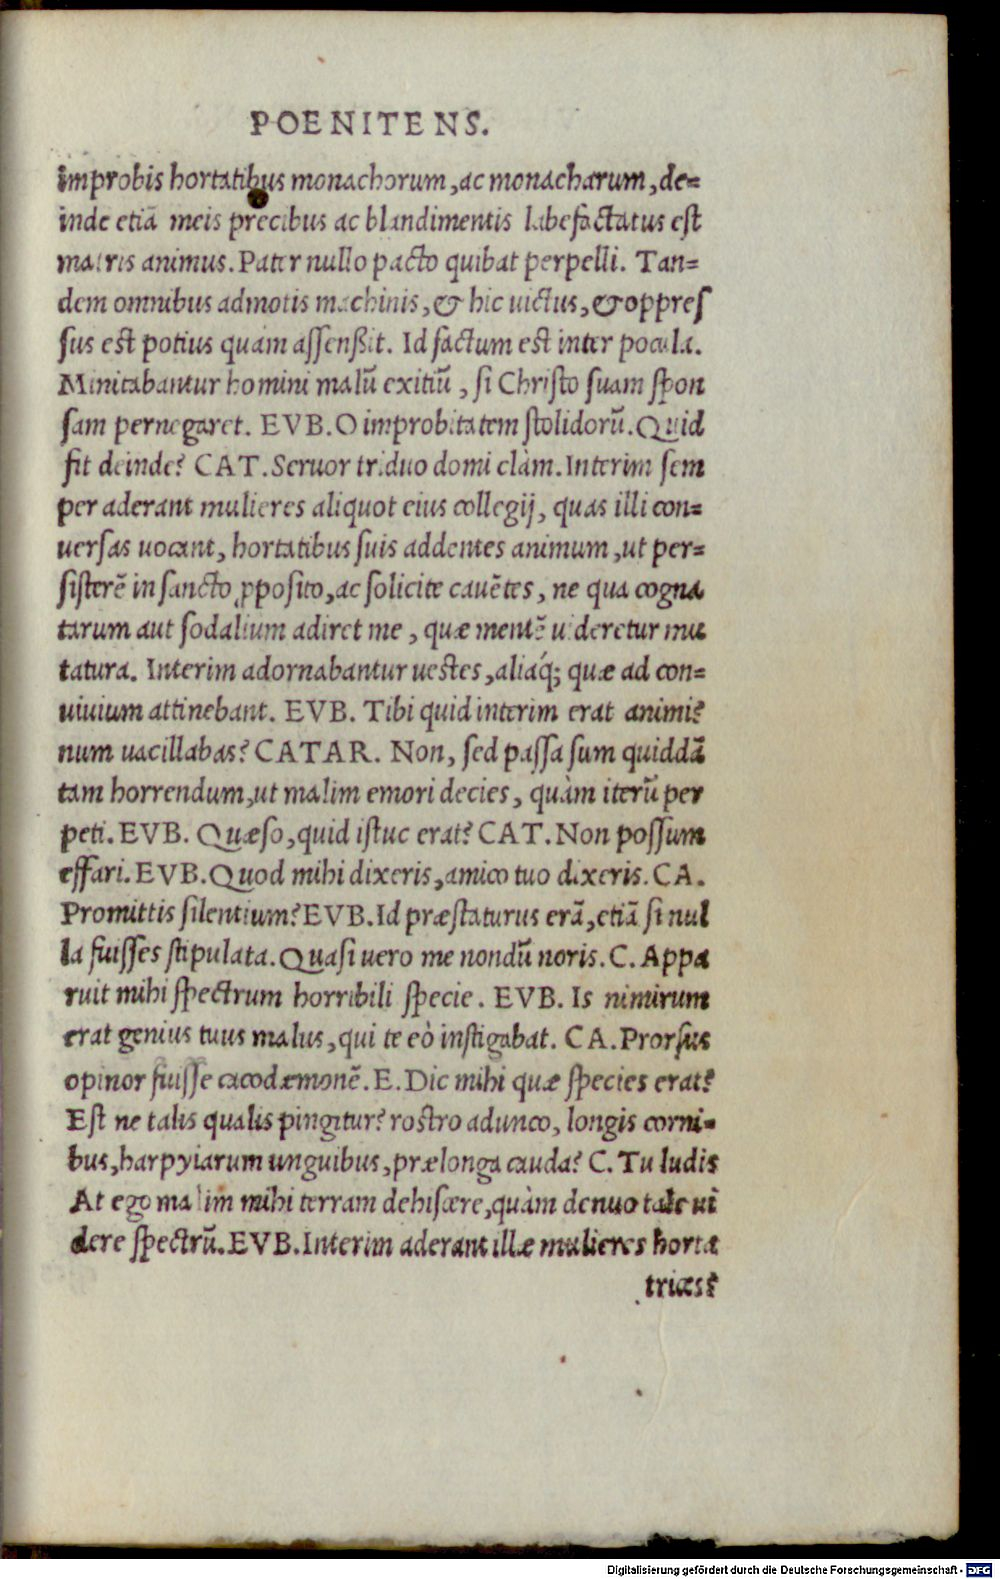 POENITENS.
improbis hortatibus monachorum, ac monacharum, de=
inde etiã meis precibus ac blandimentis labefactatus est
matris animus. Pater nullo pacto quibat perpelli. Tan=
dem omnibus admotis machinis, & hic uictus, & oppres
sus est potius quàm assensßit. Id factum est inter pocula.
Minitabantur homini malũ exitiũ, si Christo suam spon
sam pernegaret. EVB. O improbitatem stolidorũ. Quid
fit deinde? CAT. Seruor triduo domi clàm. Interim sem
per aderant mulieres aliquot eius collegij, quas illi con=
uersas uocant, hortatibus suis addentes animum, ut per=
sisterẽ in sancto ꝓposito, ac solicite cauẽtes, ne qua cogna
tarum aut sodalium adiret me, quæ mentẽ uideretur mu
tatura. Interim adornabantur uestes, aliaq́; quæ ad con=
uiuium attinebant. EVB. Tibi quid interim erat animi?
num uacillabas? CATAR. Non, sed passa sum quiddã
tam horrendum, ut malim emori decies, quàm iterũ per
peti. EVB. Quæso, quid istuc erat? CAT. Non possum
effari. EVB. Quod mihi dixeris, amico tuo dixeris. CA.
Promittis silentium? EVB. Id præstaturus erã, etiã si nul
la fuisses stipulata. Quasi uero me nondũ noris. C. Appa
ruit mihi spectrum horribili specie. EVB. Is nimirum
erat genius tuus malus, qui te eò instigabat. CA. Prorsus
opinor fuisse cacodæmonẽ. E. Dic mihi quæ species erat?
Est ne talis qualis pingitur? rostro adunco, longis corni=
bus, harpyiarum unguibus, prælonga cauda? C. Tu ludis
At ego malim mihi terram dehiscere, quàm denuo tale ui
dere spectrũ. EVB. Interim aderant illæ mulieres horta
trices?
Digitalisierung gefördert durch die Deutsche Forschungsgemeinschaft - DFG